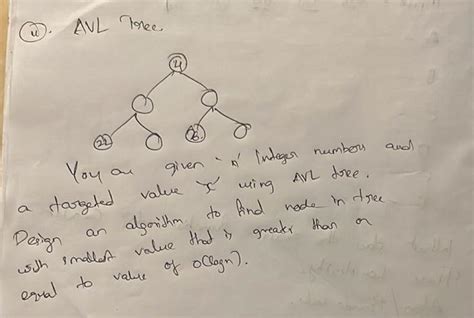 AVL Tree.
You are given 'n' Integer numbers and
a targeted value 'x' using AVL tree.
Design an algorithm to find node in tree
with smallest value that is greater than or
equal to value of O(logn).